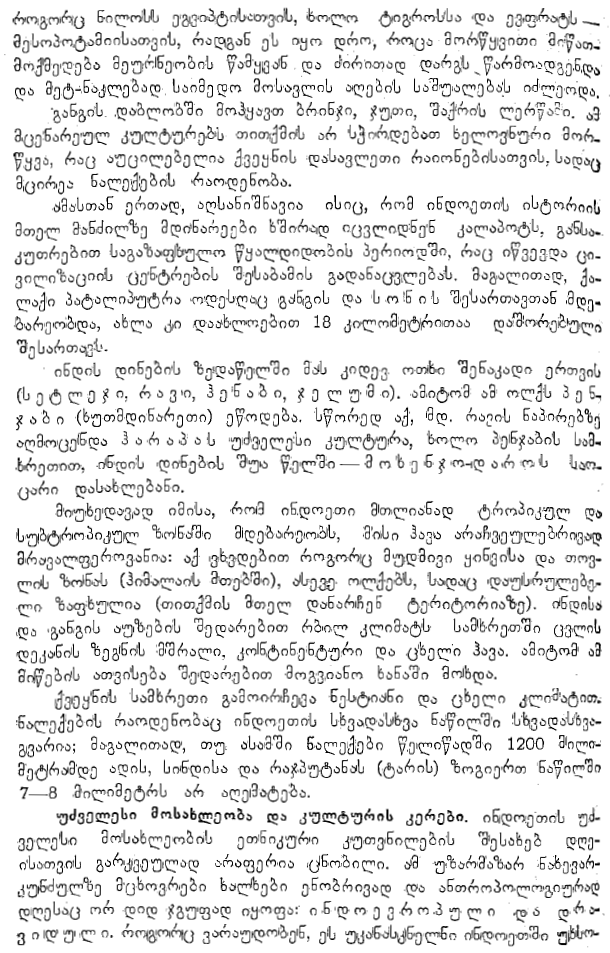 როგორც ნილოსს ეგვიპტისათვის, ხოლო ტიგროსსა და ევფრატს —
მესოპოტამიისათვის, რადგან ეს იყო დრო, როცა მორწყვითი მიწათ-
მოქმედება მეურნეობის წამყვან და ძირითად დარგს წარმოადგენდა
და მეტ-ნაკლებად საიმედო მოსავლის აღების საშუალებას იძლეოდა.
განგის დაბლობში მოჰყავთ ბრინჯი, ჯუთი, შაქრის ლერწამი. ამ
მცენარეულ კულტურებს თითქმის არ სჭირდებათ ხელოვნური მორ-
წყვა, რაც აუცილებელია ქვეყნის დასავლეთი რაიონებისათვის, სადაც
მცირეა ნალექების რაოდენობა.
ამასთან ერთად, აღსანიშნავია ისიც, რომ ინდოეთის ისტორიის
მთელ მანძილზე მდინარეები ხშირად იცვლიდნენ კალაპოტს, განსა-
კუთრებით საგაზაფხულო წყალდიდობის პერიოდში, რაც იწვევდა ცი-
ვილიზაციის ცენტრების შესაბამის გადანაცვლებას. მაგალითად, ქა-
ლაქი პატალიპუტრა ოდესღაც განგის და სონის შესართავთან მდე-
ბარეობდა, ახლა კი დაახლოებით 18 კილომეტრითაა დაშორებული
შესართავს.
ინდის დინების ზედაწელში მას კიდევ ოთხი შენაკადი ერთვის
(სეტლეჯი, რავი, ჰენაბი, ჯელუმი). ამიტომ ამ ოლქს პენ-
ჯაბი (ხუთმდინარეთი) ეწოდება. სწორედ აქ, მდ. რავის ნაპირებზე
აღმოცენდა ჰარაპას უძველესი კულტურა, ხოლო პენჯაბის სამ-
ხრეთით, ინდის დინების შუა წელში — მოხენჯო-დაროს საო-
ცარი დასახლებანი.
მიუხედავად იმისა, რომ ინდოეთი მთლიანად ტროპიკულ და
სუბტროპიკულ ზონაში მდებარეობს, მისი ჰავა არაჩვეულებრივად
მრავალფეროვანია: აქ ვხვდებით როგორც მუდმივი ყინვისა და თოვ-
ლის ზონას (ჰიმალაის მთებში), ასევე ოლქებს, სადაც დაუსრულებე-
ლი ზაფხულია (თითქმის მთელ დანარჩენ ტერიტორიაზე). ინდისა
და განგის აუზების შედარებით რბილ კლიმატს სამხრეთში ცვლის
დეკანის ზეგნის მშრალი, კონტინენტური და ცხელი ჰავა. ამიტომ ამ
მიწების ათვისება შედარებით მოგვიანო ხანაში მოხდა.
ქვეყნის სამხრეთი გამოირჩევა ნესტიანი და ცხელი კლიმატით.
ნალექების რაოდენობაც ინდოეთის სხვადასხვა ნაწილში სხვადასხვა-
გვარია; მაგალითად, თუ ასამში ნალექები წელიწადში 1200 მილი-
მეტრამდე ადის, სინდისა და რაჯპუტანას (ტარის) ზოგიერთ ნაწილში
7—8 მილიმეტრს არ აღემატება.
უძველესი მოსახლეობა და კულტურის კერები. ინდოეთის უძ-
ველესი მოსახლეობის ეთნიკური კუთვნილების შესახებ დღე-
ისათვის გარკვეულად არაფერია ცნობილი. ამ უზარმაზარ ნახევარ-
კუნძულზე მცხოვრები ხალხები ენობრივად და ანთროპოლოგიურად
დღესაც ორ დიდ ჯგუფად იყოფა: ინდოევროპული და დრა-
ვიდული. როგორც ვარაუდობენ, ეს უკანასკნელნი ინდოეთში უხსო-